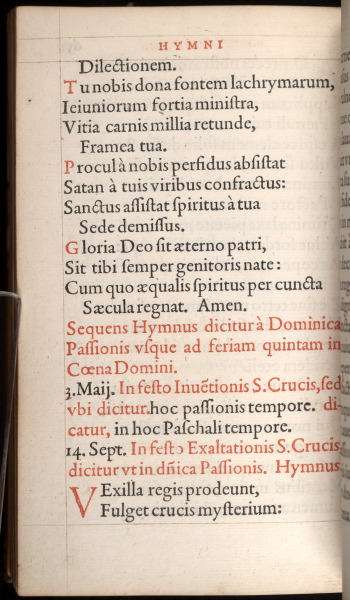 HYMNI
Dilectionem.
Tu nobis dona fontem lachrymarum,
Ieiuniorum fortia miniſtra,
Vitia carnis millia retunde,
Framea tua.
Procul à nobis perfidus abſiſtat
Satan à tuis viribus confractus:
Sanctus aſſiſtat ſpiritus à tua
Sede demiſſus.
Gloria Deo ſit æterno patri,
Sit tibi ſemper genitoris nate:
Cum quo æqualis ſpiritus per cuncta
Sæcula regnat. Amen.
Sequens Hymnus dicitur à Dominica
Paſſionis vſque ad feriam quintam in
Cœna Domini.
3. Maij. In feſto Inuẽtionis S. Crucis, ſed
vbi dicitur. hoc paſſionis tempore. di-
catur, in hoc Paſchali tempore.
14. Sept. In feſto Exaltationis S. Crucis
dicitur vt in dñica Paſſionis. Hymnus
VExilla regis prodeunt,
Fulget crucis myſterium: